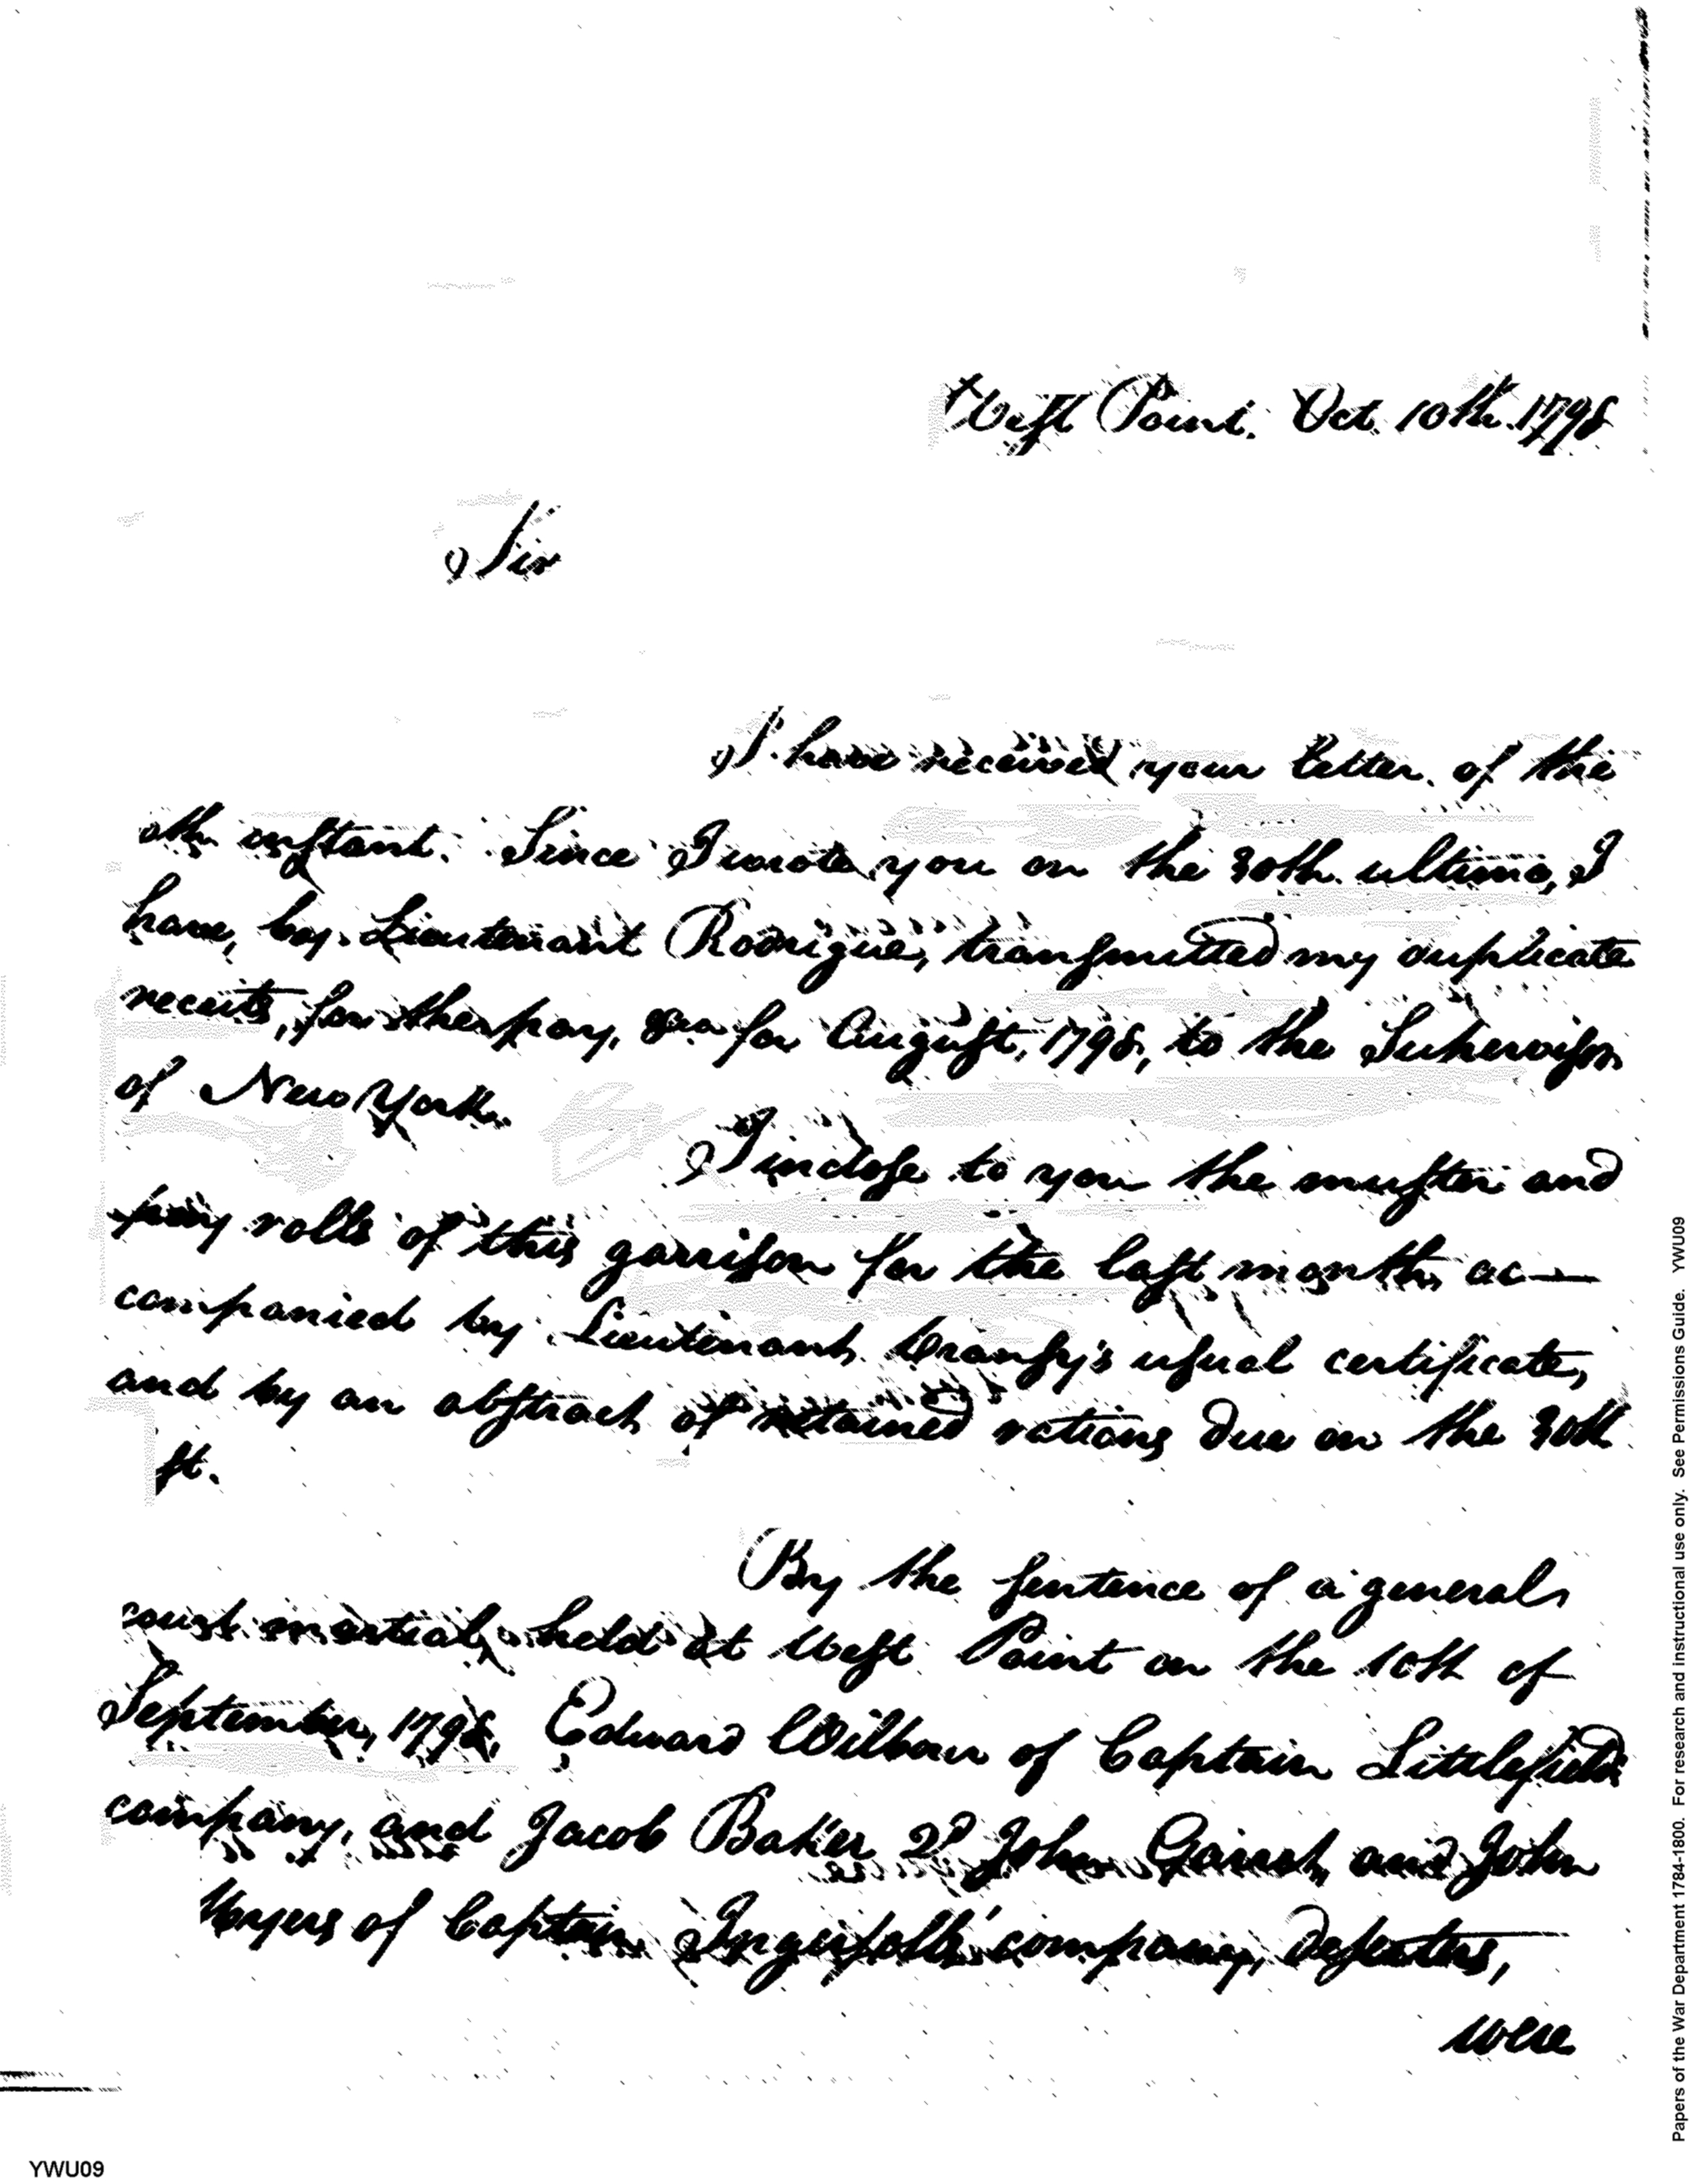 West Point. Oct. 10th. 1798
Sir
I have received your letter of the
6th instant. Since I wrote you on the 30th. ultimo, I
have, by Lieutenant Rodrigue, transmitted my duplicate
receits, for the pay, &ca for August, 1798, to the Supervisor
of New York.
I inclose to you the muster and
pay rolls of this garrison for the last month, ac—
companied by Lieutenant usual certificate,
and by an abstract of retained rations due on the 30th
By the sentence of a general
court martial, held at West Point on the 10th of
September, 1798, Edward Wilbour of Captain Littlefield
company, and Jacob Baker 2d John and John
Myers of Captain Ingersoll's company, deserters,
were
Papers of the War Department 1784-1800. For research and instructional use only. See Permissions Guide. YWU09
YWU09